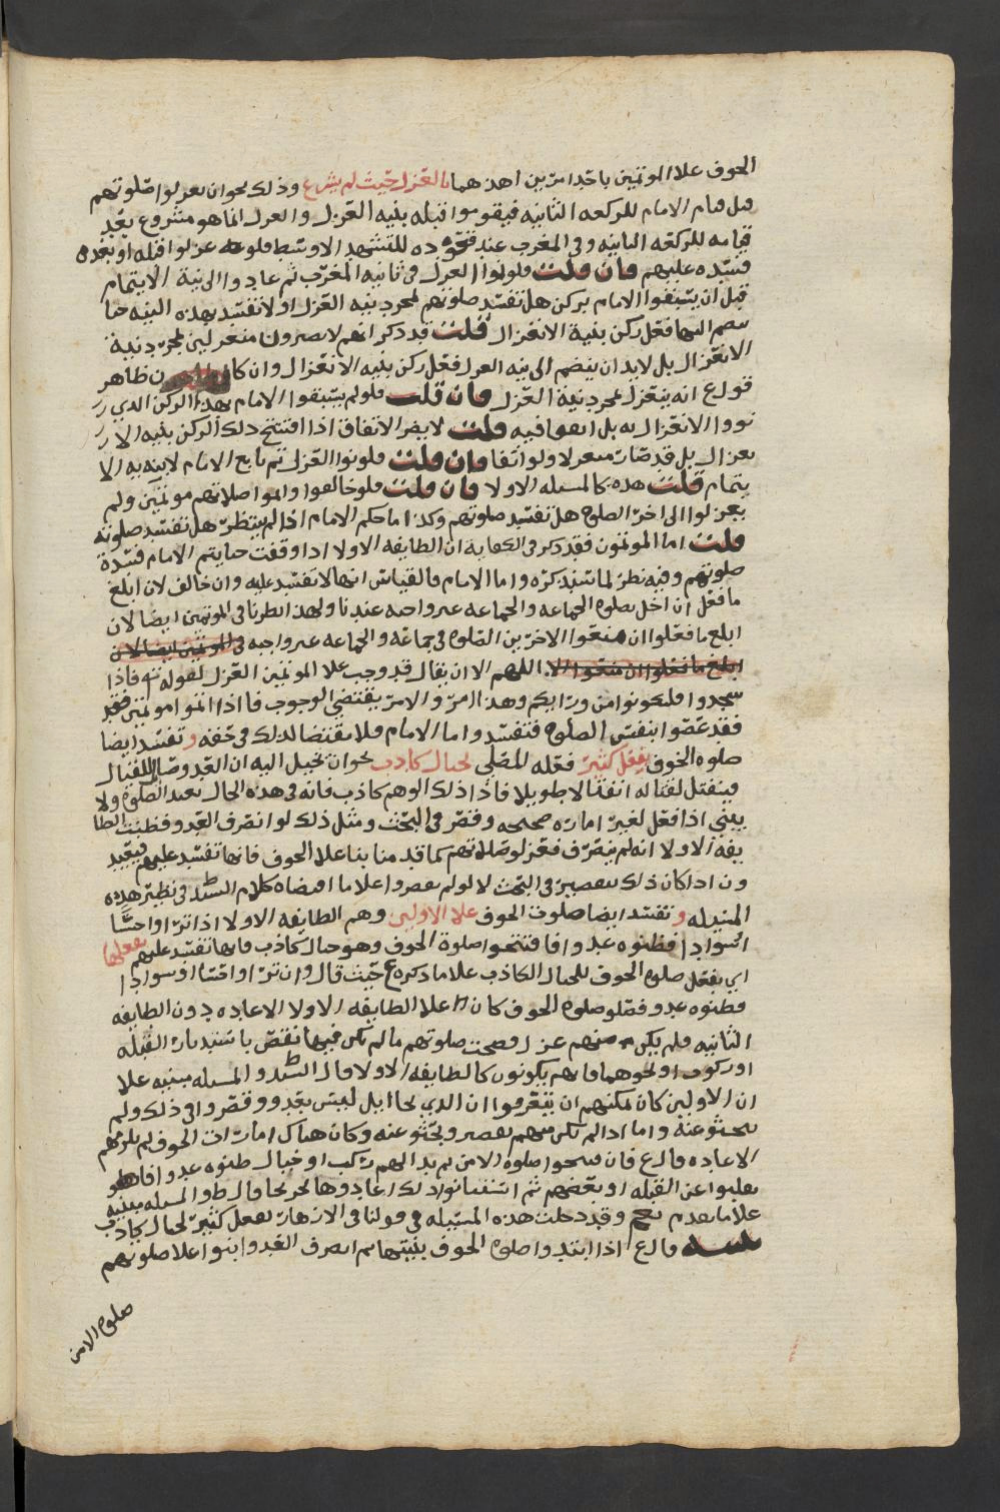 الخوف علا الموتمين باحد امرين احدهما بالعزل حيث لم يشرع وذلك نحو ان يعزلوا صلوتهم
قبل قيام الامام للركعه الثانيه فيقوموا قبله بنيه العزل والعزل انما هو مشروع بعد
قيامه للركعه الثانيه وفي المغرب عند قعوده للتشهد الاوسط فلو عزلوا قبله او بعده
فسده عليهم فان قلت فلو نووا العزل في ثانيه المغرب ثم عادوا الى نية الايتمام
قبل ان يسبقوا الامام بركن هل تفسد صلوتهم لمجرد نيه العزل او لا تفسد بهذه النيه حتا
ينضم اليها فعل ركن بنية الانعزال قلت قد ذكر انهم لا يصيرون منعزلين بمجرد نية
الانعزال بل لا بد ان ينضم الى نيه العزل فعل ركن بنيه الانعزال وان كان ظاهر
قول ع انه ينعزل بمجرد نية العزل فان قلت فلو لم يسبقوا الامام بهذا الركن الذي
نووا الانعزال به بل اتفقوا فيه قلت لا يضر الاتفاق اذا افتتح ذلك الركن بنيه الا
نعزال بل قد صار منعزلا ولو اتفقا فان قلت فلو نووا العزل ثم تابع الامام لا بنيه الا
يتمام قلت هذه كالمسله الاولا فان قلت فلو خالفوا واتموا صلاتهم موتمين ولم
يعزلوا الى اخر الصلوه هل تفسد صلوتهم وكذا ما حكم الامام اذا لم ينتظر هل تفسد صلوته
قلت اما الموتمون فقد ذكر في الكفايه ان الطايفه الاولا اذا وقفت حتا يتم الامام فسدة
صلوتهم وفيه نظر لما سنذكره واما الامام فالقياس انها لا تفسد عليه وان خالف لان ابلغ
ما فعل ان اخل بصلوه الجماعه والجماعه غير واجبه عندنا ولهذا نظرنا في الموتمين ايضا لان
ابلغ ما فعلوا ان منعوا الاخرين الصلوه في جماعة والجماعه غير واجبه في الموتمين ايضا لان
ابلغ ما فعلوا ان منعوا الا اللهم الا ان يقال قد وجب علا الموتمين العزل لقوله تع فاذا
سجدوا فليكونوا من ورايكم وهذا امر والامر يقتضي الوجوب فاذا اتموا موتمين فقد
فقد عصوا بنفس الصلوه فتفسد واما الامام فلا يقتضا لذلك في حقه و تفسد ايضا
صلوه الخوف بفعل كثير فعله المصلي لخيال كاذب نحو ان يخيل اليه ان العدو صال للقتال
فينفتل لقتاله انفتالا طويلا فاذا ذلك الوهم كاذب فانه في هذه الحال يعيد الصلوه ولا
يبني اذا فعل لغير امارة صحيحه وقصر في البحث ومثل ذلك لو انصرف العدو فظنت الطا
يفه الاولا انه لم ينصرف فعزلو صلاتهم كما قدمنا بنا علا الخوف فانها تفسد عليهم ويعيد
ون اذا كان ذلك بتقصير في البحث لا لو لم يقصروا علا ما اقتضاه كلام السيد ط في نظير هذه
المسله و تفسد ايضا صلوت الخوف علا الاولين وهم الطايفه الاولا اذا تراوا حسًا
او سوادا فظنوه عدوا فافتتحوا صلوة الخوف وهو خيال كاذب فانها تفسد عليهم بفعلها
اي بفعل صلوه الخوف للخيال الكاذب علا ما ذكره ع حيث قال وان تراوا حسا او سوادا
فظنوه عدو فصلو صلوه الخوف كان علا الطايفه الاولا الاعاده دون الطايفه
الثانيه فلم يكن منهم عزل وصحت صلوتهم ما لم يكن فيها نقص باستدبار القبله
او ركوب او نحوهما فانهم يكونون كالطايفه الاولا قال السيد ط والمسله مبنيه علا
ان الاولين كان يمكنهم ان يتعرفوا ان الذي تخايل ليس بعدو وقصروا في ذلك ولم
يبحثو عنه واما اذا لم يكن منهم تقصير وبحثو عنه وكان هناك امارات الخوف لم يلزمهم
الاعاده قال ع فان فتحوا صلوه الامن ثم تدا لهم ركب او خيال ظنوه عدوا فاهو
نقلبوا عن القبله او بعضهم ثم استبانوا ذلك اعادوها لخوبخا قال ط والمسله مبنيه
علا ما تقدم نعم وقد دخلت هذه المسئله في قولنا في الازهار بفعل كثير لخيال كاذب
مسله قال ع اذا ابتدوا صلوه الخوف بنيتها ثم انصرف العدو ابنوا علا صلوتهم
صلوه الامن